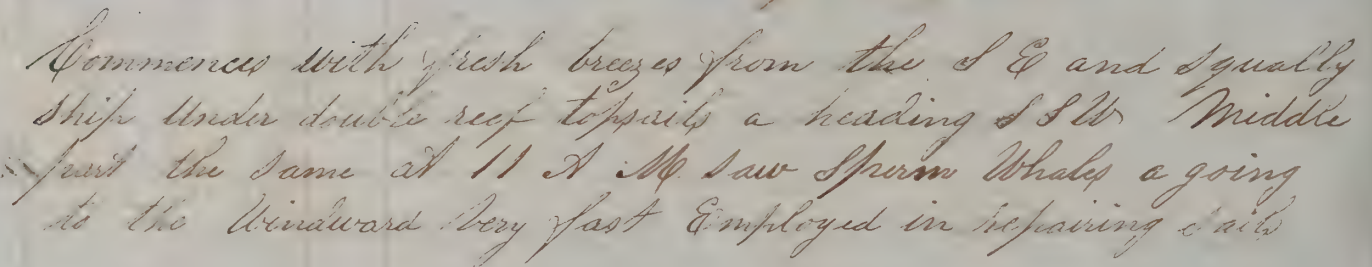 Commences with fresh breezes from the S E and squally
ship Under double reef topsails a heading S S W Middle
part the same at 11 A M saw Sperm Whales a going
to the Windward Very fast Employed in repairing sails